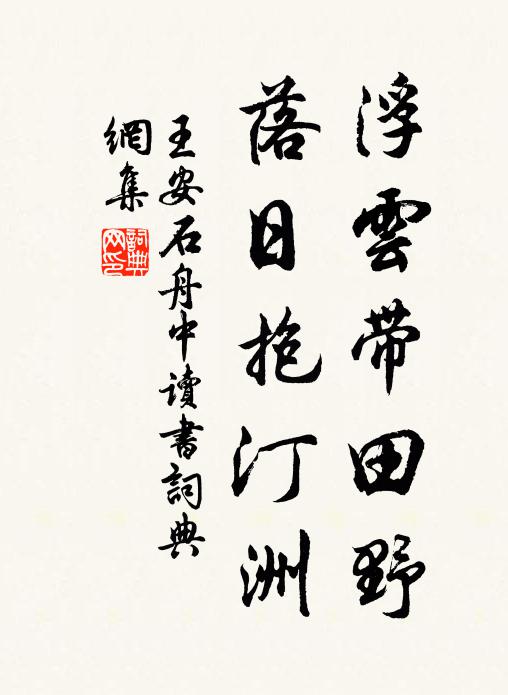 浮雲帶田野
落日抱汀洲
王安石舟中讀書詞典
網集
詞典
网印